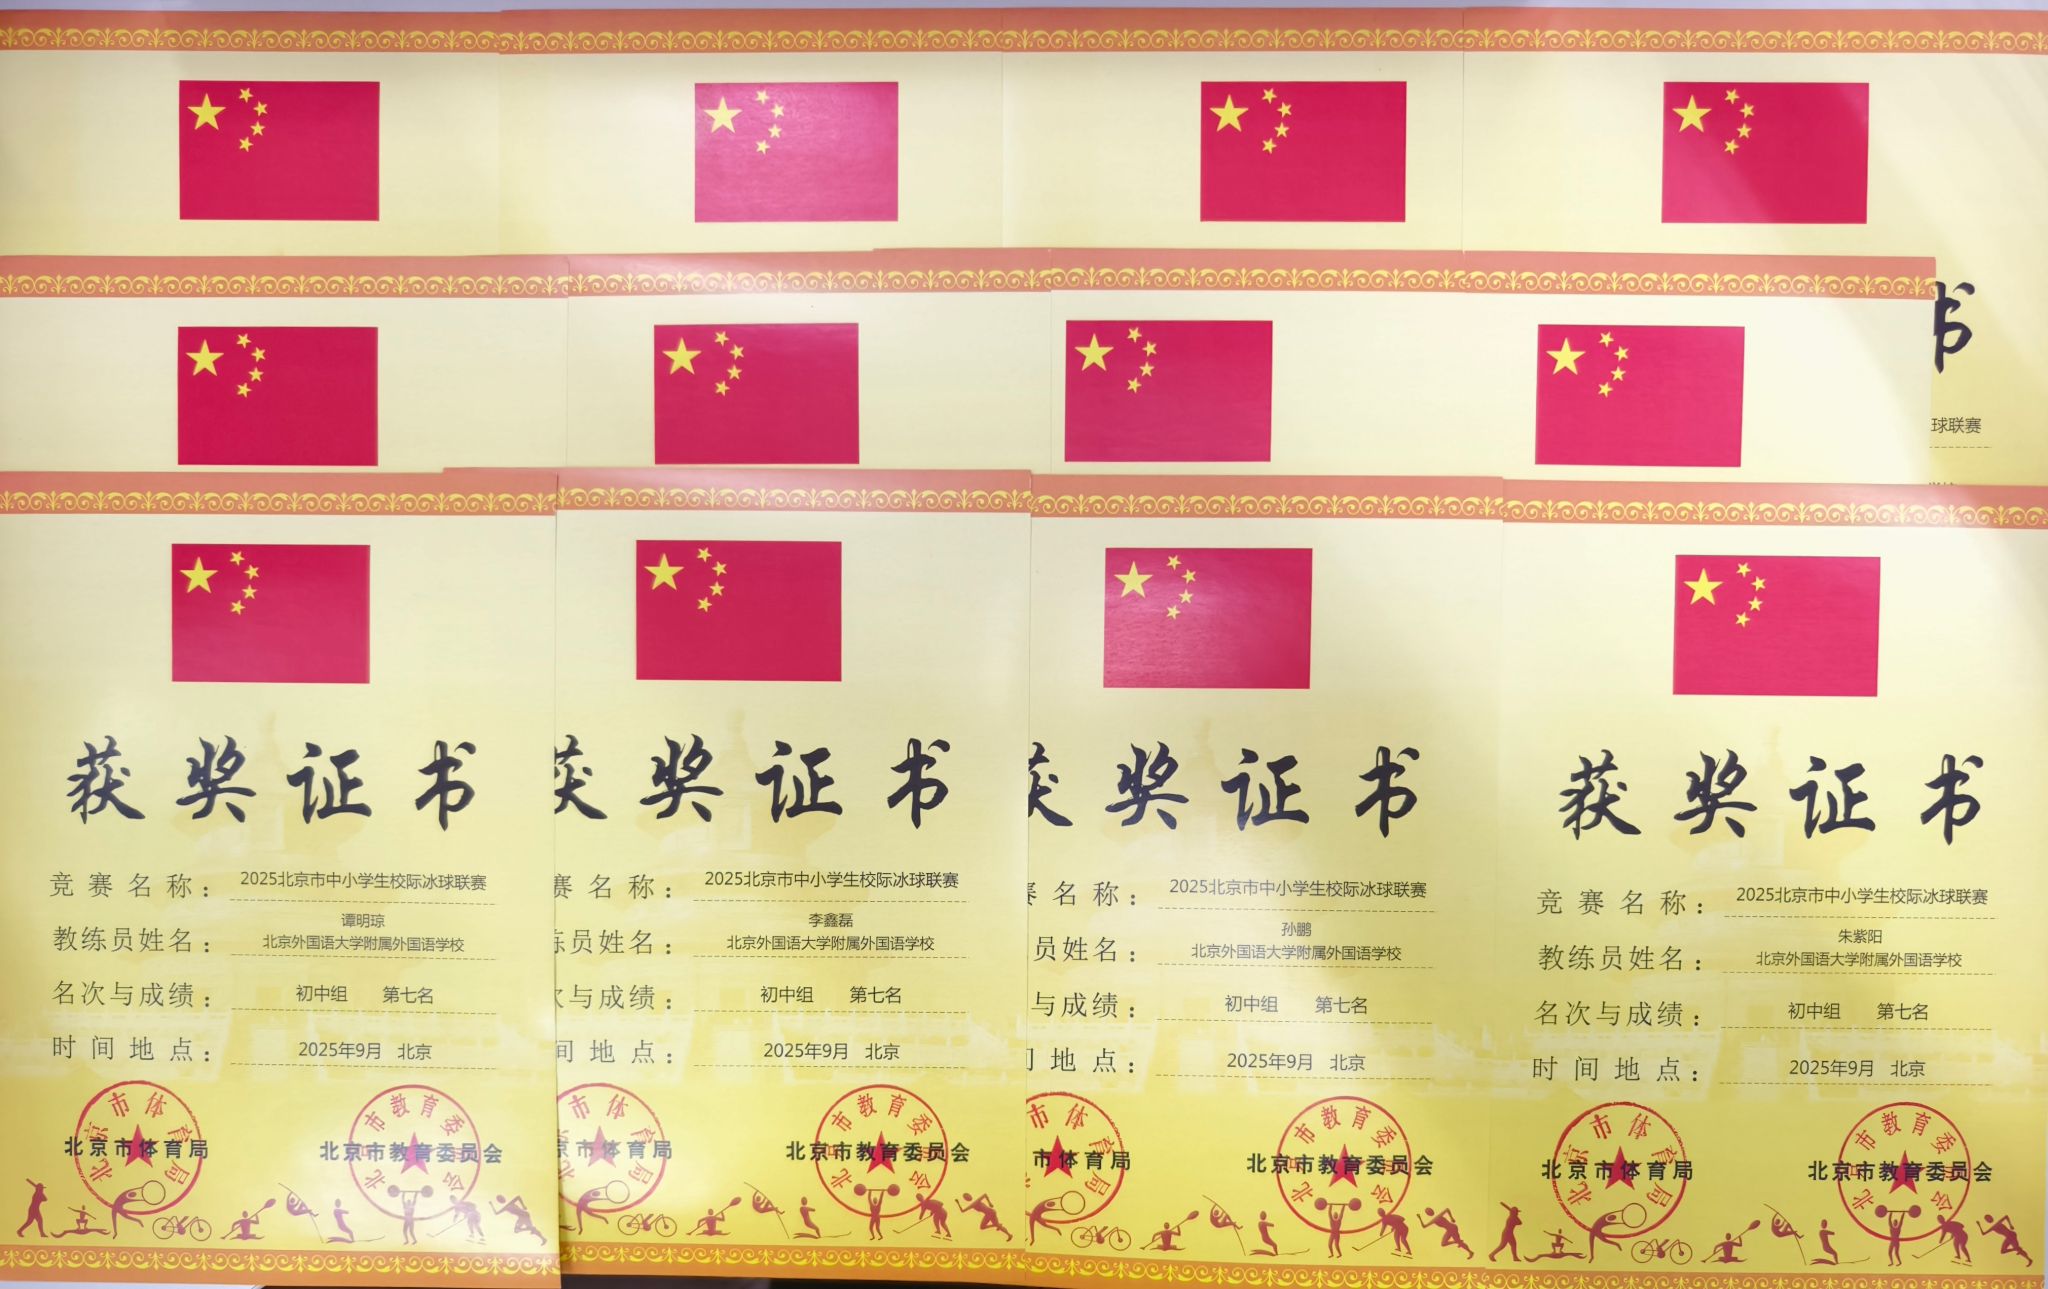 书
球联赛
获奖证书
竞赛名称：2025北京市中小学生校际冰球联赛
谭明琼
教练员姓名：北京外国语大学附属外国语学校
名次与成绩：初中组 第七名
时间地点：2025年9月 北京
北京市体育局 北京市教育委员会
北京市体育局
北京市教育委员会
获奖证书
赛名称：2025北京市中小学生校际冰球联赛
李鑫磊
员姓名：北京外国语大学附属外国语学校
与成绩：初中组 第七名
间地点：2025年9月 北京
京市体育局 北京市教育委员会
市体育局
北京市教育委员会
获奖证书
名称：2025北京市中小学生校际冰球联赛
孙鹏
员姓名：北京外国语大学附属外国语学校
与成绩：初中组 第七名
地点：2025年9月 北京
市体育局 北京市教育委员会
市体育局
北京市教育委员会
获奖证书
竞赛名称：2025北京市中小学生校际冰球联赛
朱紫阳
教练员姓名：北京外国语大学附属外国语学校
名次与成绩：初中组 第七名
时间地点：2025年9月 北京
北京市体育局 北京市教育委员会
北京市体育局
北京市教育委员会